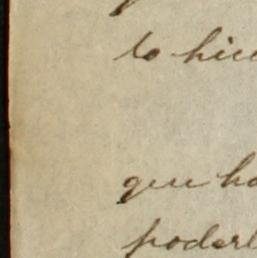 to hici
que ha
poderl